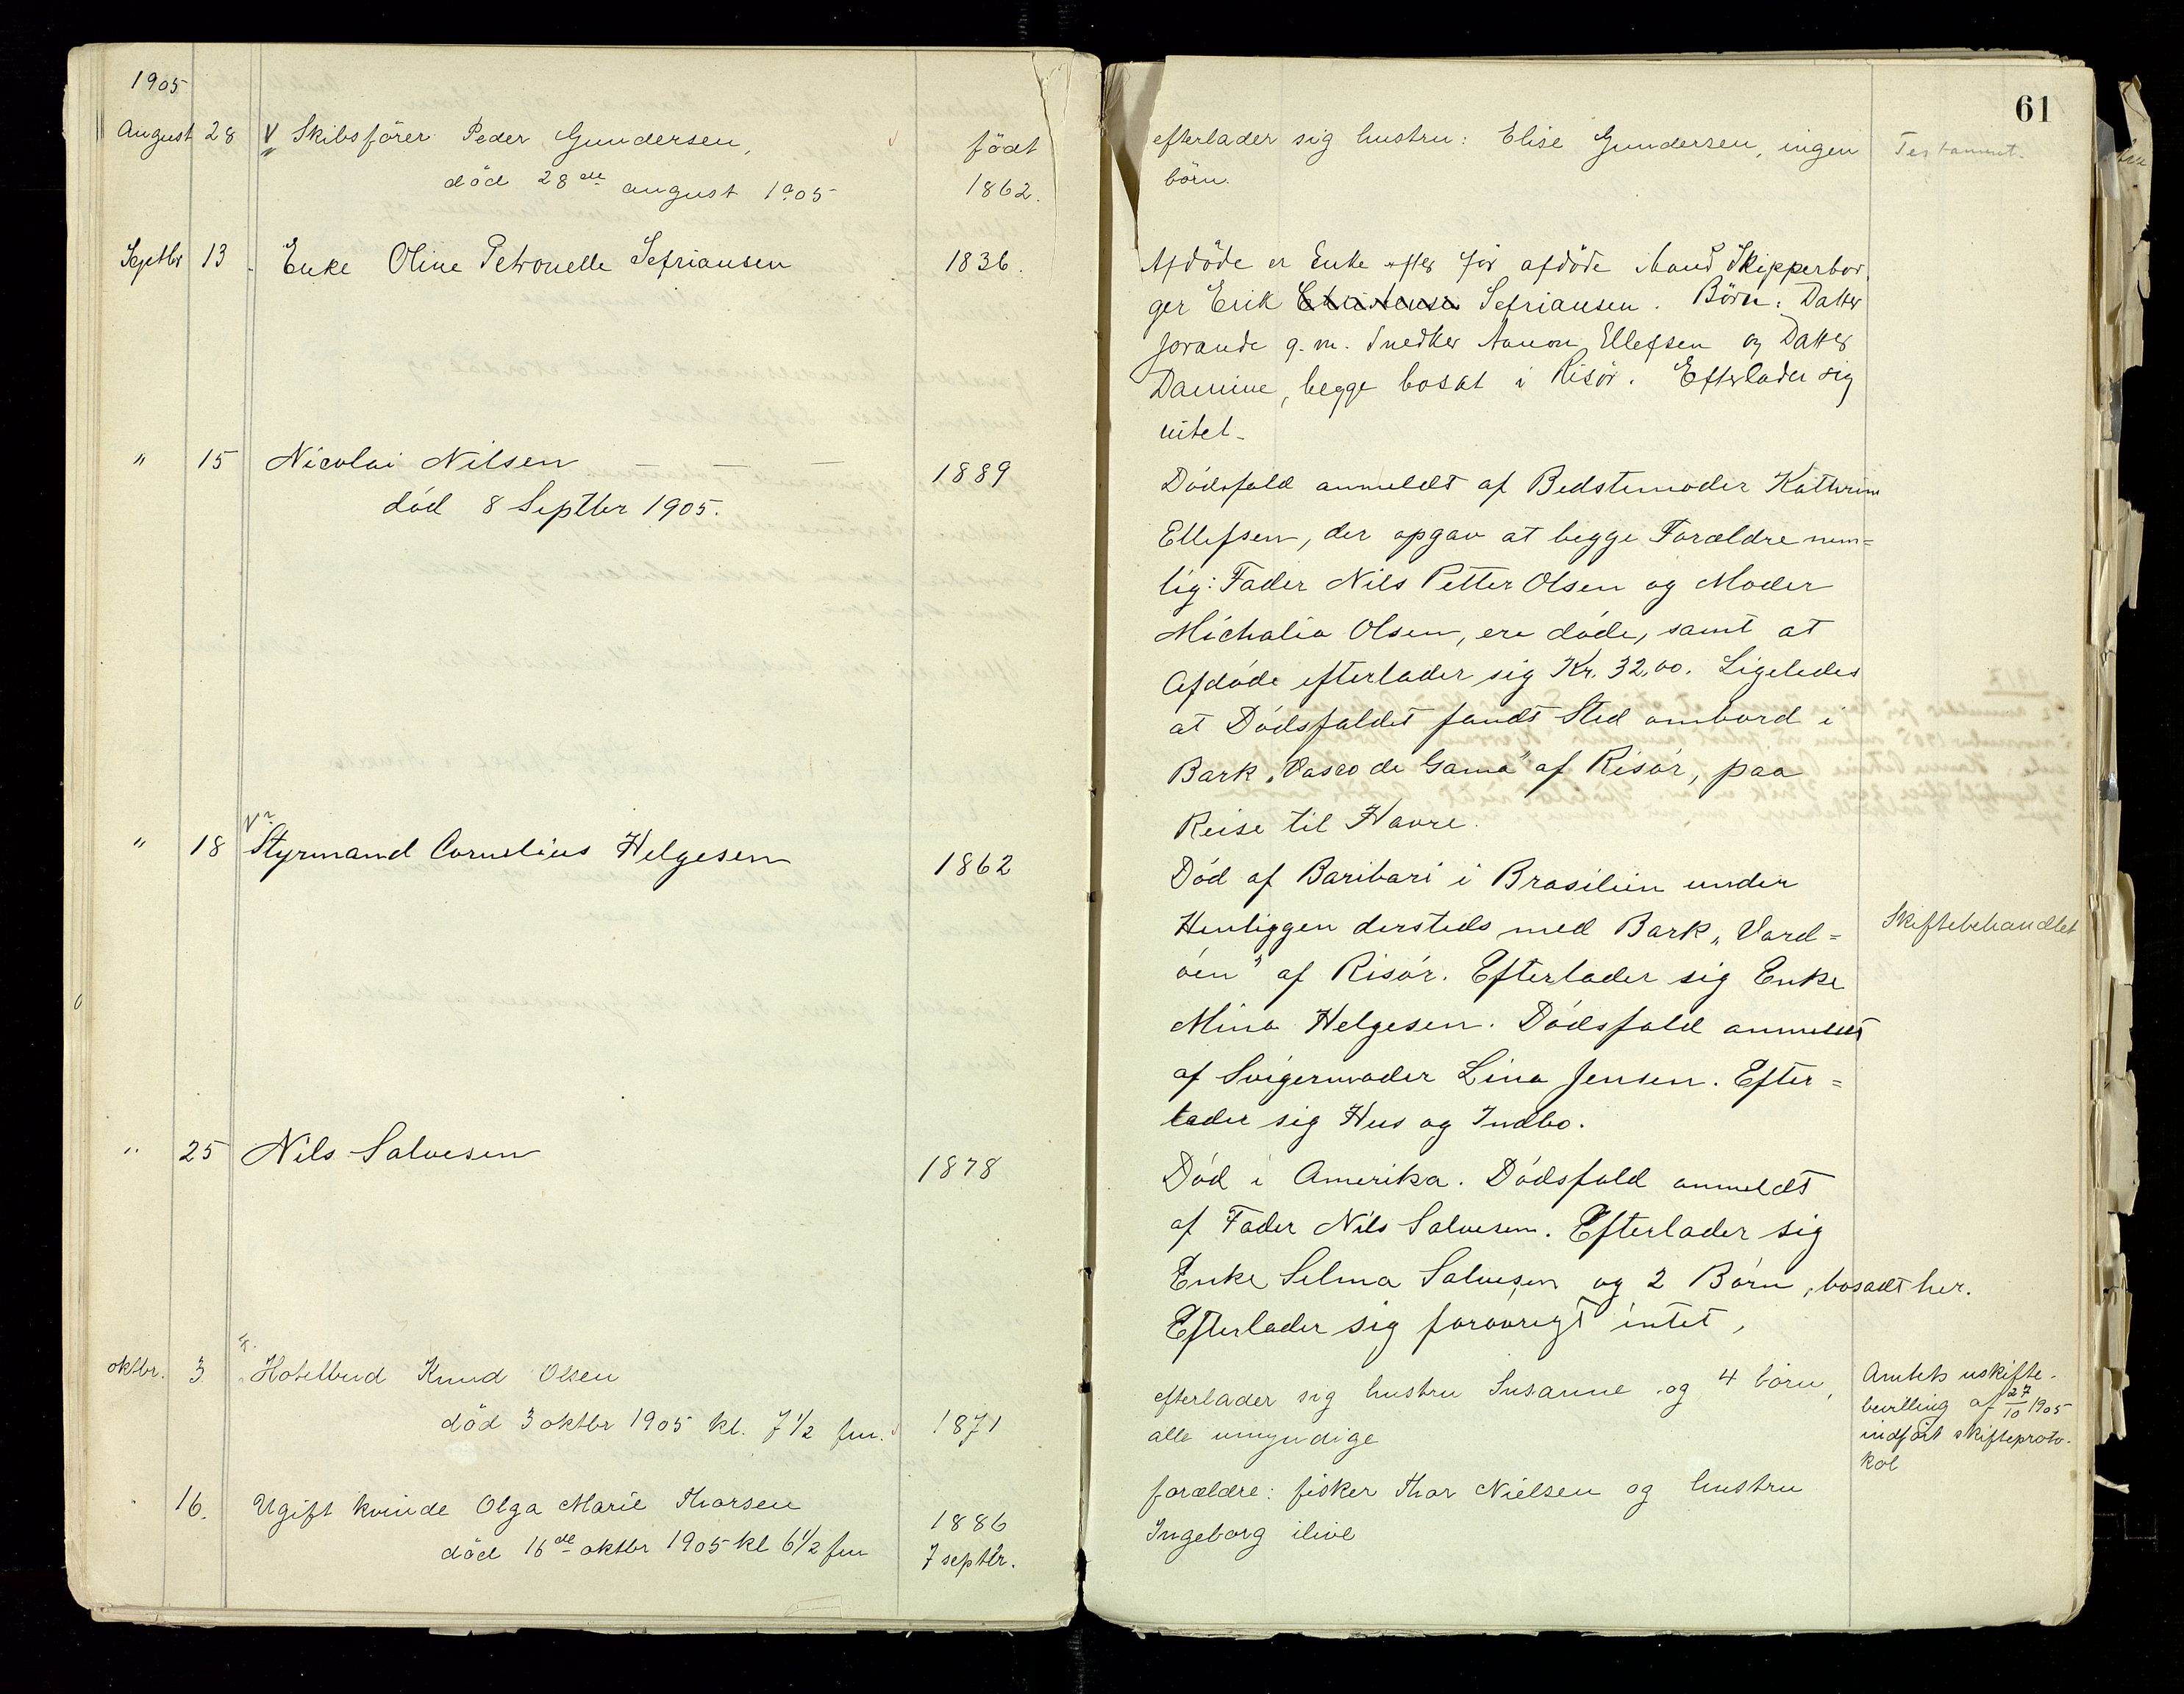 1905
August 28 V Skibsförer Peder Gundersen, födt
död 28de august 1905 1862.
Septbr 13 Enke Oline Petronelle Sefriansen 1836.
" 15 Nicolai Nilsen — — — 1889
död 8 Septbr 1905.
" 18 Styrmand Cornelius Helgesen 1862
" 25 Nils Salvesen 1878
oktbr. 3 Hotelbud Knud Olsen
död 3 oktbr 1905 kl. 7 1/2 fm. 1871
16. Ugift kvinde Olga Marie Thorsen 1886
död 16de oktbr 1905 kl 6 1/2 fm 7 septbr.
61
efterlader sig hustru: Elise Gundersen, ingen Testament.
börn.
Afdöde er Enke efter för afdöde Mand Skipperbor
ger Erik Sefriansen. Börn: Datter
Jorande g. m. Snedker Aanon Ellefsen og Datter
Damine, begge bosat i Risör. Efterlader sig
intet.
Dödsfald anmeldt af Bedstemoder Kathrine
Ellefsen, der opgav at begge Forældre nem=
lig: Fader Nils Petter Olsen og Moder
Michalia Olsen, ere döde, samt at
Afdöde efterlader sig Kr. 32,00. Ligeledes
at Dödsfaldet fandt Sted ombord i
Bark „Vasco de Gama" af Risör, paa
Reise til Havre.
Död af Baribari i Brasilien under
Henliggen dersteds med Bark „Vard= Skiftebehandlet
öen" af Risör. Efterlader sig Enke
Mina Helgesen. Dödsfald anmeldt
af Svigermoder Lina Jensen. Efter=
lader sig Hus og Indbo.
Död i Amerika. Dödsfald anmeldt
af Fader Nils Salvesen. Efterlader sig
Enke Selma Salvesen og 2 Börn, bosadt her.
Efterlader sig forövrigt intet,
efterlader sig hustru Susanne og 4 börn,
alle umyndige
Amtets uskifte-
bevilling af 27/10 1905
indfört skifteproto-
kol
forældre: fisker Thor Nielsen og hustru
Ingeborg ilive